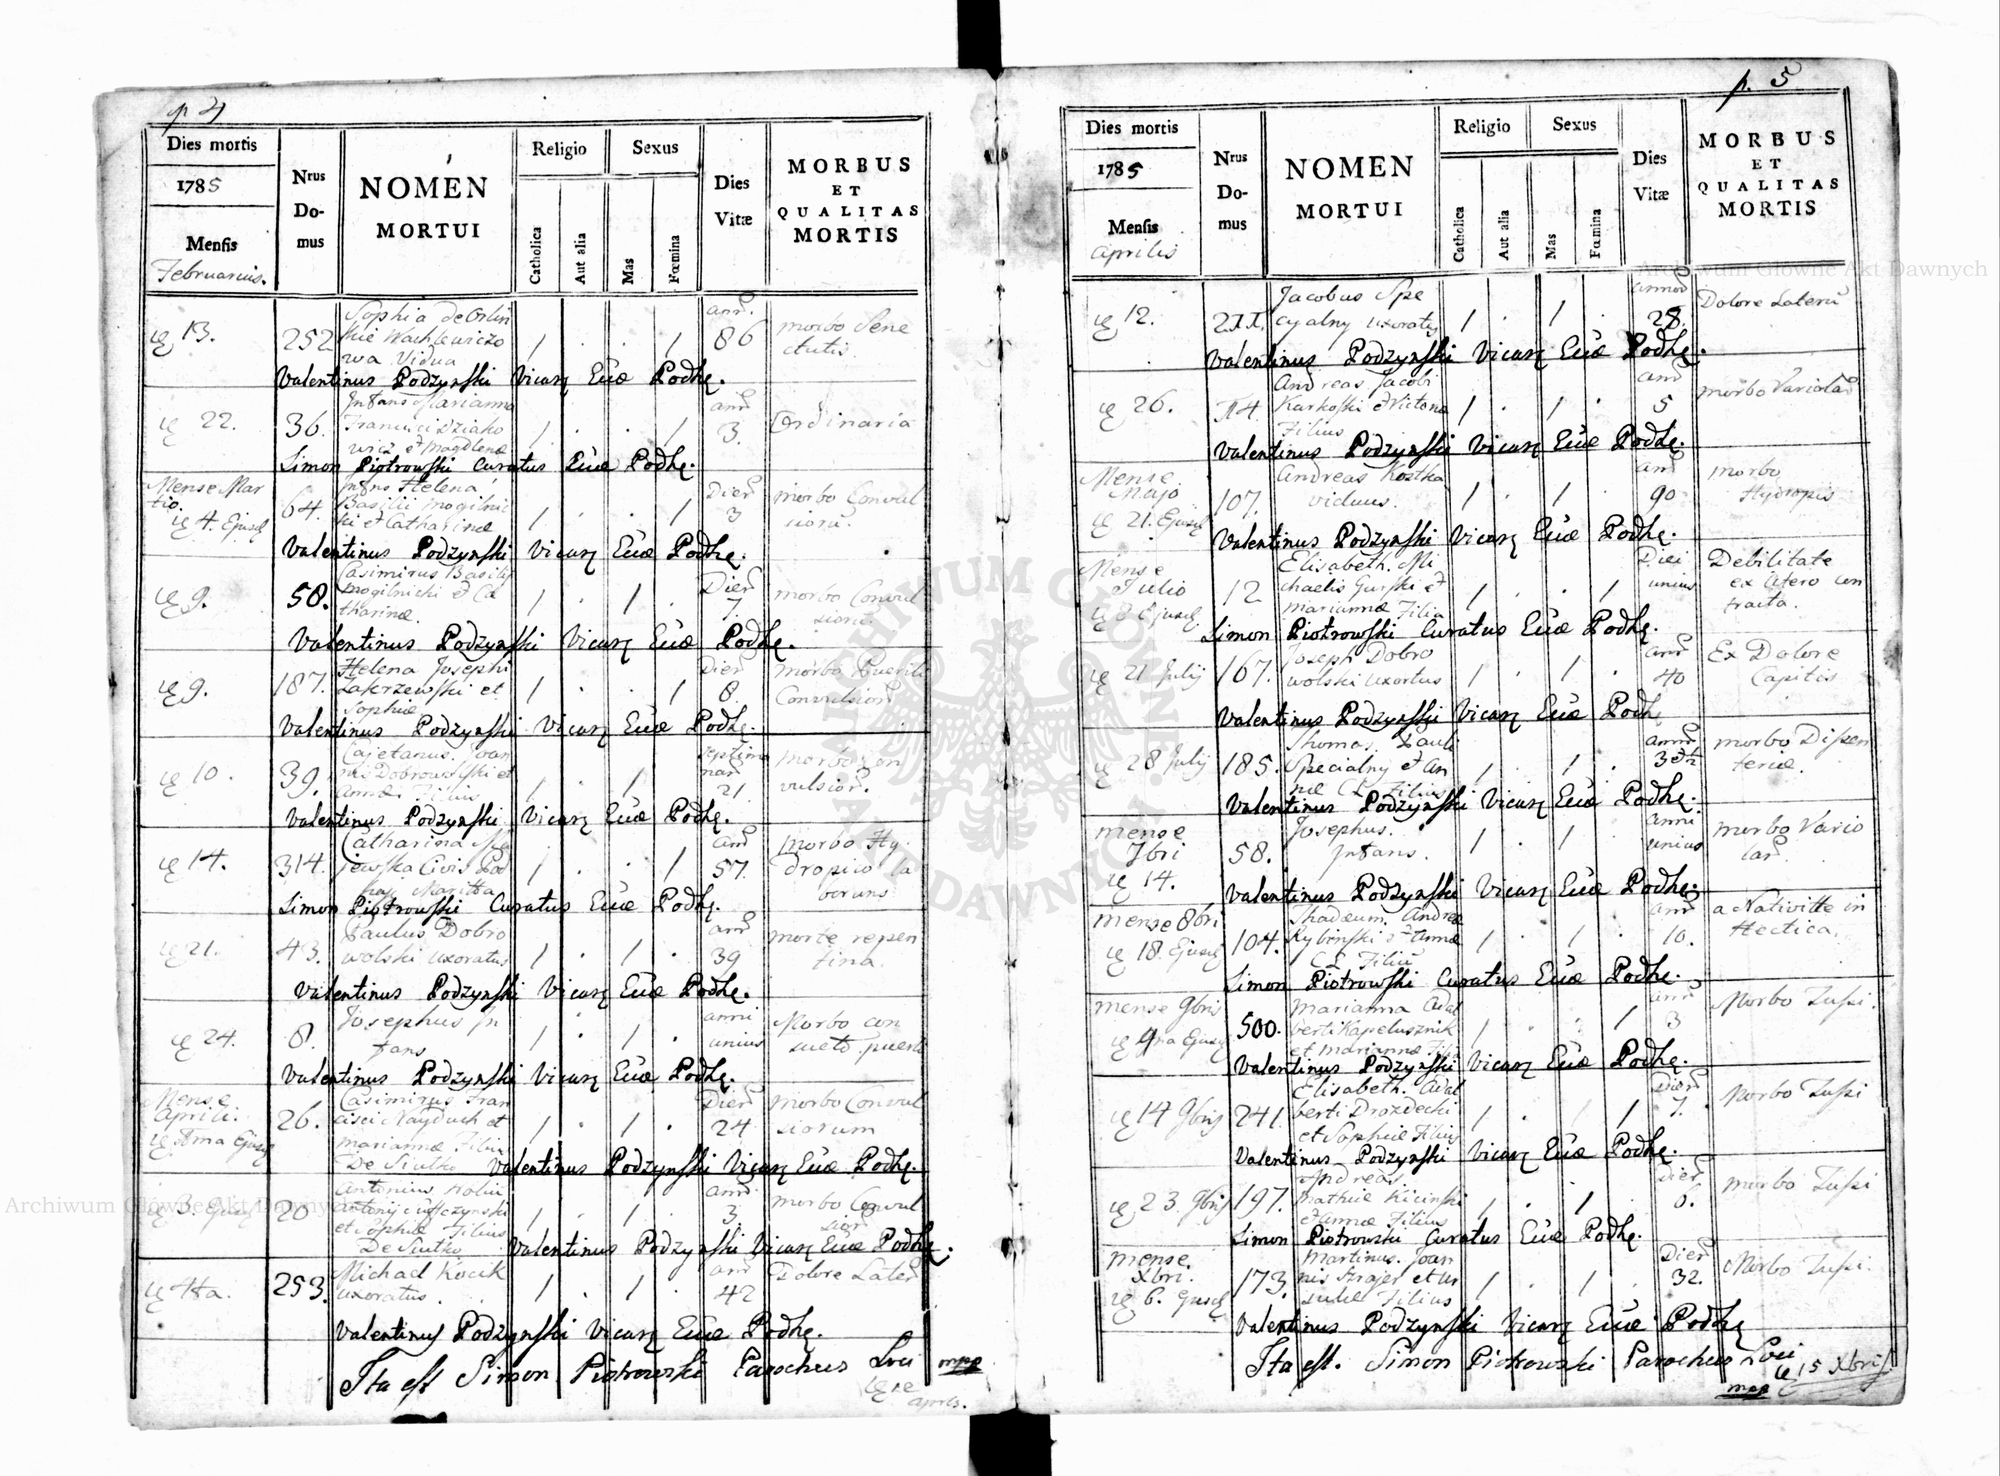 p 4
Dies mortis
1785
Mensis
Februarius.
Nrus
Do-
mus
NOMEN
MORTUI
Religio
Catholica
Aut alia
Sexus
Mas
Fœmina
Dies
Vitæ
MORBUS
ET
QUALITAS
MORTIS
13.
252
Sophia de
Wachlewiczo
wa Vidua
1 . . 1
86
morbo Sene
ctutis.
Valentinus Podzynski Vicarq Eccæ Podhę.
22.
36.
Infans Marianna
Francisci Dziako
wicz et Magdlenæ
1 . . 1
3.
Ordinaria
Simon Piotrowski Curatus Eccæ Podhę.
Mense Mar
tio.
4. Ejusq
64.
Infans Helena
Basilii Mogilnic
ki et Catharinæ
1 . . 1
Dier
3
morbo Convul
siorū.
Valentinus Podzynski Vicarq Eccæ Podhę.
9.
58.
Casimirus Basilij
Mogilnicki et Ca
tharinæ.
1 . 1 .
Dier
7.
morbo Convul
siorū.
Valentinus Podzynski Vicarq Eccæ Podhę.
9.
187.
Helena Josephi
Zakrzewski et
Sophiæ
1 . . 1
Dier
8.
morbo Puerili
Convulsior
Valentinus Podzynski Vicarq Eccæ Podhę.
10.
39.
Cajetanus. Joan
nis Dobrowolski et
Annæ Filius
1 . 1
septima
nar
21
morbo Con
vulsior.
Valentinus Podzynski Vicarq Eccæ Podhę.
14.
314.
Catharina Ma
jewska Civis Pod
haj. Maritta
1 . . 1
57.
morbo Hy
dropico la
borans.
Simon Piotrowski Curatus Eccæ Podhę.
21.
43.
Paulus Dobro
wolski uxoratus
1 . 1 .
39
morte repen
tina.
Valentinus Podzynski Vicarq Eccæ Podhę.
24.
8.
Josephus In
fans
1 . 1 .
anni
unius
Morbo con
sueto pueril
Valentinus Podzynski Vicarq Eccæ Podhę.
Mense
Aprili.
26.
Casimirus Fran
cisci Nayduch et
Mariannæ Filius
De Siulko
1 . 1 .
Dier
24
morbo Convul
siorum
Valentinus Podzynski Vicarq Eccæ Podhę.
3.
20
Antonius
Antonij
et Sophiæ Filius
De Siulko
1 . 1 .
3.
morbo Convul
sior
Valentinus Podzynski Vicarq Eccæ Podhę.
253.
Michael Kocik
uxoratus.
1 1 .
42
Dolore Later
Valentinus Podzynski Vicarq Eccæ Podhę.
Ita est Simon Piotrowski Parochus Loci mpp
Aprilis.
p. 5
Dies mortis
1785
Mensis
Aprilis
Nrus
Do-
mus
NOMEN
MORTUI
Religio
Catholica
Aut alia
Sexus
Mas
Fœmina
Dies
Vitæ
MORBUS
ET
QUALITAS
MORTIS
12.
211.
Jacobus Spe
cyalny uxoratus
1 . 1 .
28.
Dolore Laterū
Valentinus Podzynski Vicarq Eccæ Podhę.
26.
114.
Andreas Jacobi
Karkoski et Victoria
Filius
1 . 1 .
5
morbo Variolar
Valentinus Podzynski Vicarq Eccæ Podhę.
Mense
Majo
21. Ejusq
107.
Andreas Kostka
viduus.
1 . 1 .
90
morbo
Hydropis
Valentinus Podzynski Vicarq Eccæ Podhę.
Mense
Julio
Ejusq
12
Elisabeth. Mi
chaelis Gurski et
Mariannæ Filia
1 . . 1
Diei
unius
Debilitate
ex Utero con
tracta.
Simon Piotrowski Curatus Eccæ Podhę.
21 Julij
167.
Joseph Dobro
wolski uxortus
1 . 1 .
40
Ex Dolore
Capitis
Valentinus Podzynski Vicarq Eccæ Podhę.
28 Julij
185.
Thomas. Pauli
Specialny et An
næ CL Filius
1 . 1 .
morbo Dissen
teriæ.
Valentinus Podzynski Vicarq Eccæ Podhę.
Mense
7bri
14.
58.
Josephus.
Infans.
1 . 1 .
anni
unius
morbo Vario
lar
Valentinus Podzynski Vicarq Eccæ Podhę.
Mense 8bri
18. Ejusq
104.
Thadæum. Andreæ
Rybinski et Annæ
CL Filiū
1 . 1 .
10.
a Nativitte in
Hectica.
Simon Piotrowski Curatus Eccæ Podhę.
Mense 9bris
9na Ejusq
500.
Marianna Adal
berti Kapelusznik
et Mariannæ
1 . . 1
3
Morbo Tussi.
Valentinus Podzynski Vicarq Eccæ Podhę.
14 9bris
241.
Elisabeth. Adal
berti Drozdecki
et Sophiæ Filius
1 . . 1
Dier
7.
Morbo Tussi
Valentinus Podzynski Vicarq Eccæ Podhę.
23. 9bris
197.
Andreas
Mathiæ Kicinski
et Annæ Filius
1 . 1 .
Dier
6.
morbo Tussi
Simon Piotrowski Curatus Eccæ Podhę.
Mense
Xbri.
6. Ejusq
173.
Martinus. Joan
nis Strajer et Ur
sulæ Filius
1 . 1 .
Dier
32.
Morbo Tussi.
Valentinus Podzynski Vicarq Eccæ Podhę
Ita est. Simon Piotrowski Parochus Loci
mpp 15 Xbris.
Archiwum Główne Akt Dawnych
Archiwum Główne Akt Dawnych
ARCHIWUM GŁÓWNE AKT DAWNYCH